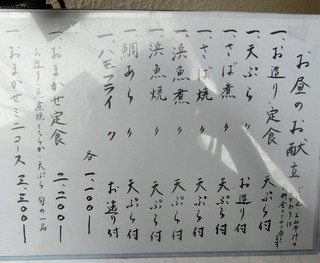 お昼のお献立
一、お造り定食 天ぷら付
一、天ぷら 〃 お造り付
一、さば煮 〃 天ぷら付
一、さば焼 〃 天ぷら付
一、浜魚煮 〃 天ぷら付
一、浜魚焼 〃 天ぷら付
一、鯛あら 〃 天ぷら付
一、ハモフライ 〃 お造り付
各 一、一〇〇ー
一、おまかせ定食 二、二〇〇ー
お造り 天ぷら 旬の一品
一、おまかせミニコース 三、三〇〇ー